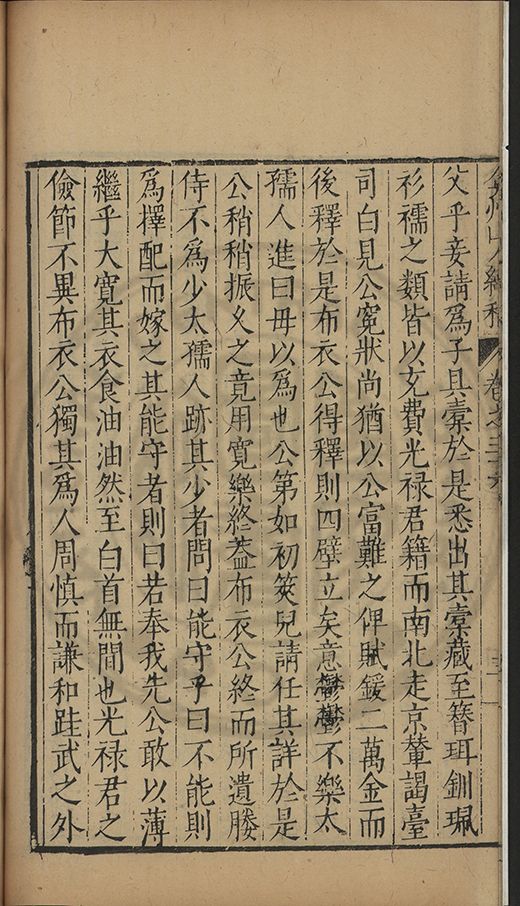 弇州山人續稿 卷之三
父乎妾請爲子且橐於是悉出其橐藏至簪珥釧珮
衫襦之類皆以充費光禄君籍而南北走京輦謁臺
司白見公寃狀尚猶以公富難之俾賦鍰二萬金而
後釋於是布衣公得釋則四壁立矣意鬱鬱不樂太
孺人進曰毋以爲也公第如初筴兒請任其詳於是
公稍稍振久之竟用寬樂終蓋布衣公終而所遺媵
侍不爲少太孺人跡其少者問曰能守乎曰不能則
爲擇配而嫁之其能守者則曰若奉我先公敢以薄
繼乎大寬其衣食油油然至白首無間也光禄君之
儉節不異布衣公獨其爲人周慎而謙和跬武之外